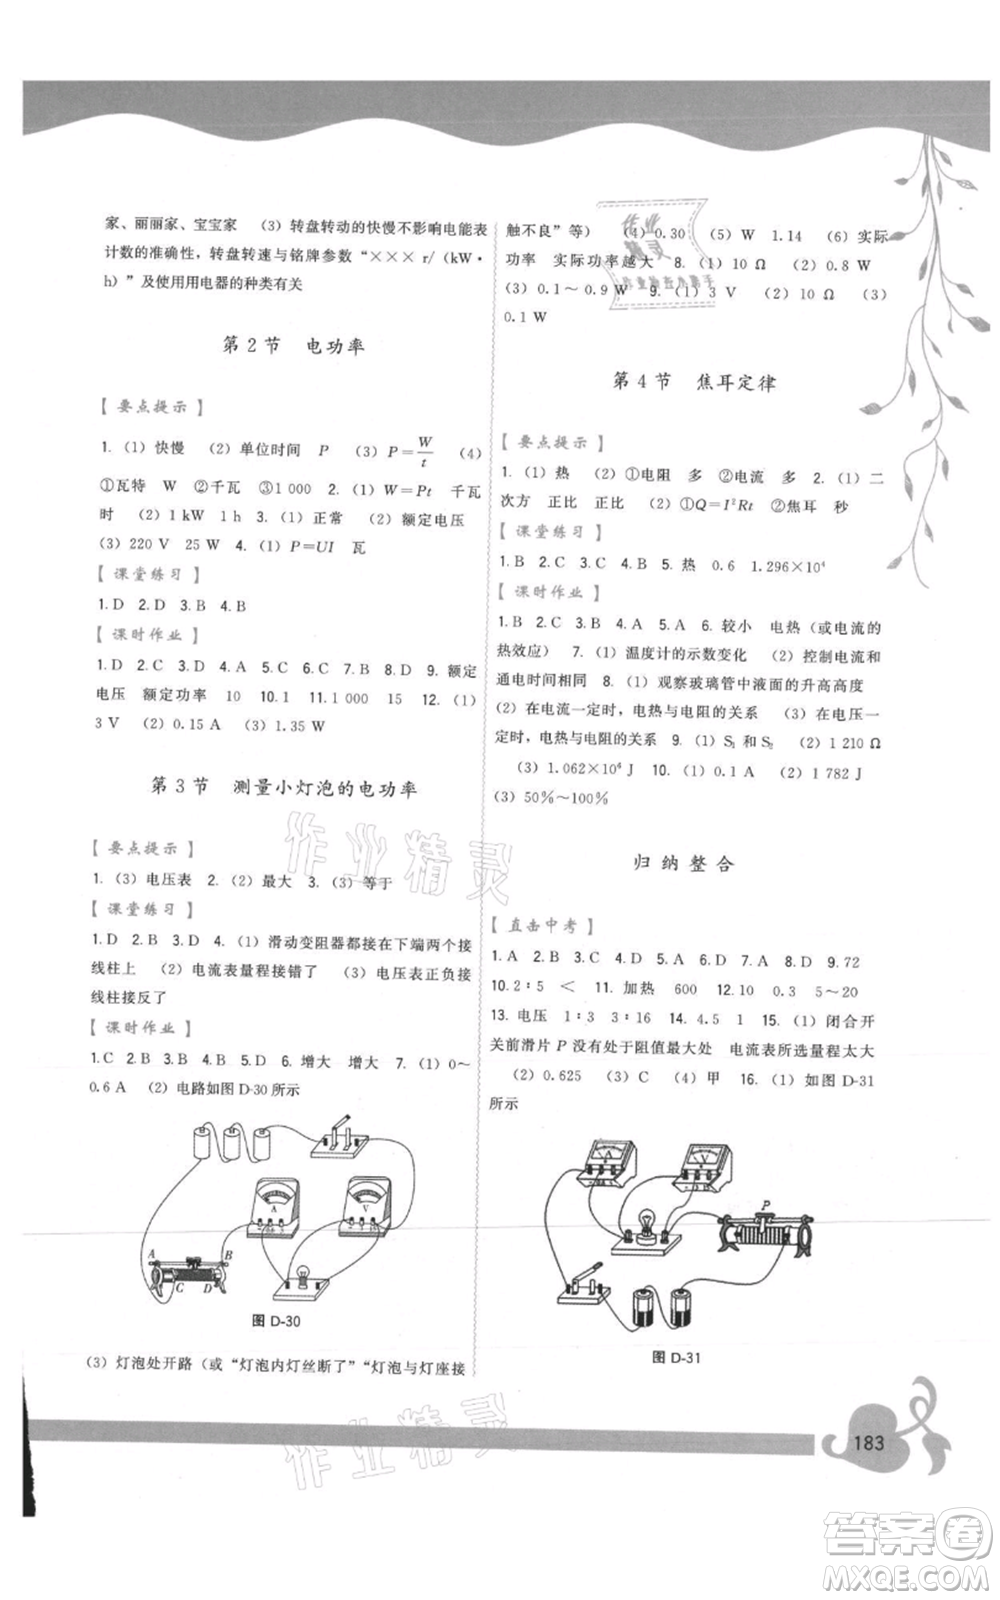 家、丽丽家、宝宝家　(3) 转盘转动的快慢不影响电能表
计数的准确性，转盘转速与铭牌参数“××× r/(kW·
h)”及使用用电器的种类有关
第 2 节　电功率
【 要点提示 】
1. (1) 快慢　(2) 单位时间　P　(3) P=W/t　(4)
①瓦特　W　②千瓦　③1 000　2. (1) W=Pt　千瓦
时　(2) 1 kW　1 h　3. (1) 正常　(2) 额定电压
(3) 220 V　25 W　4. (1) P=UI　瓦
【 课堂练习 】
1. D　2. D　3. B　4. B
【 课时作业 】
1. D　2. D　3. D　4. A　5. C　6. C　7. B　8. D　9. 额定
电压　额定功率　10　10. 1　11. 1 000　15　12. (1)
3 V　(2) 0.15 A　(3) 1.35 W
第 3 节　测量小灯泡的电功率
【 要点提示 】
1. (3) 电压表　2. (2) 最大　3. (3) 等于
【 课堂练习 】
1. D　2. D　3. D　4. (1) 滑动变阻器都接在下端两个接
线柱上　(2) 电流表量程接错了　(3) 电压表正负接
线柱接反了
【 课时作业 】
1. C　2. B　3. B　4. B　5. D　6. 增大　增大　7. (1) 0～
0.6 A　(2) 电路如图 D-30 所示
A
V
A
B
C
D
P
图 D-30
(3) 灯泡处开路（或“灯泡内灯丝断了”“灯泡与灯座接
触不良”等）　(4) 0.30　(5) W　1.14　(6) 实际
功率　实际功率越大　8. (1) 10 Ω　(2) 0.8 W
(3) 0.1～0.9 W　9. (1) 3 V　(2) 10 Ω　(3)
0.1 W
第 4 节　焦耳定律
【 要点提示 】
1. (1) 热　(2) ①电阻　多　②电流　多　2. (1) 二
次方　正比　正比　(2) ①Q=I²Rt　②焦耳　秒
【 课堂练习 】
1. B　2. C　3. D　4. B　5. 热　0.6　1.296×10⁴
【 课时作业 】
1. B　2. C　3. B　4. A　5. A　6. 较小　电热（或电流的
热效应）　7. (1) 温度计的示数变化　(2) 控制电流和
通电时间相同　8. (1) 观察玻璃管中液面的升高高度
(2) 在电流一定时，电热与电阻的关系　(3) 在电压一
定时，电热与电阻的关系　9. (1) S₁ 和 S₂　(2) 1 210 Ω
(3) 1.062×10⁶ J　10. (1) 0.1 A　(2) 1 782 J
(3) 50%～100%
归 纳 整 合
【 直击中考 】
1. A　2. B　3. C　4. C　5. D　6. D　7. A　8. D　9. 72
10. 2∶5　＜　11. 加热　600　12. 10　0.3　5～20
13. 电压　1∶3　3∶16　14. 4.5　1　15. (1) 闭合开
关前滑片 P 没有处于阻值最大处　电流表所选量程太大
(2) 0.625　(3) C　(4) 甲　16. (1) 如图 D-31
所示
A
V
P
图 D-31
183
作业精灵
作业精灵
作业精灵
答案卷
MXQE.COM